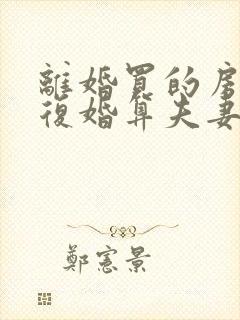 離婚買的房
復婚算夫妻
鄭憲景